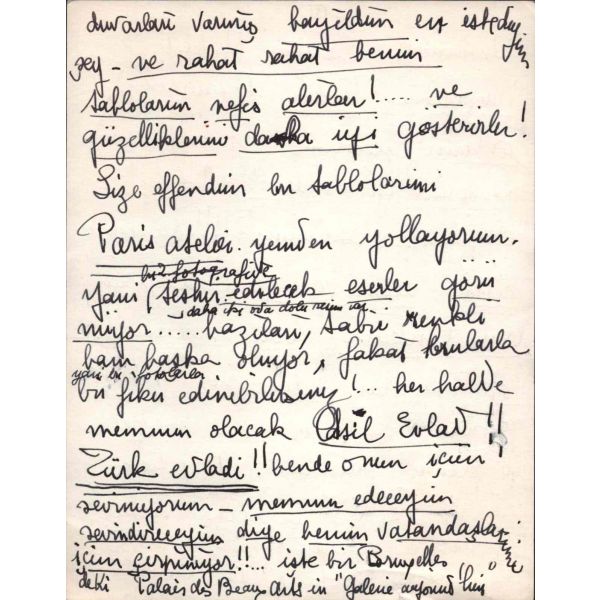 duvarları varmış bayıldım en istediğim
şey - ve rahat rahat benim
tablolarım nefis alırlar!..... ve
güzelliklerini daha iyi gösterirler!
Size effendim bu tablolarımı
Paris atelöi. yeniden yollayorum.
bu 2 fotografide
yani teshir edilecek eserler görü
daha iki oda dolu resim var
nüyor ..... bazıları, tabii renkli
bam başka oluyor, fakat bunlarla
yani bu fotolarla
bu fikir edinebilirsiniz!... her halde
memnum olacak Asil Evlad!!
Türk evladi!! bende onun için
sevinıyorum - memnum edeceyim
sevindireceyim diye benim vatandaşlarım
için çirpiniyor!!... iste bir Bruxelles
deki Palais des Beaux Arts in "Galerie